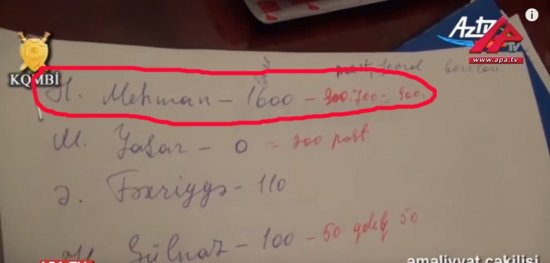 AzTV
APA TV
www.apa.tv
KQMBİ
H. Mehman - 1600 - 900. 700 = 900.
M. Yaşar - 0 = 200 post
Ə. Fəxriyyə - 110
Gülnaz - 100 - 50 gəlib 50
əməliyyat çəkilişi